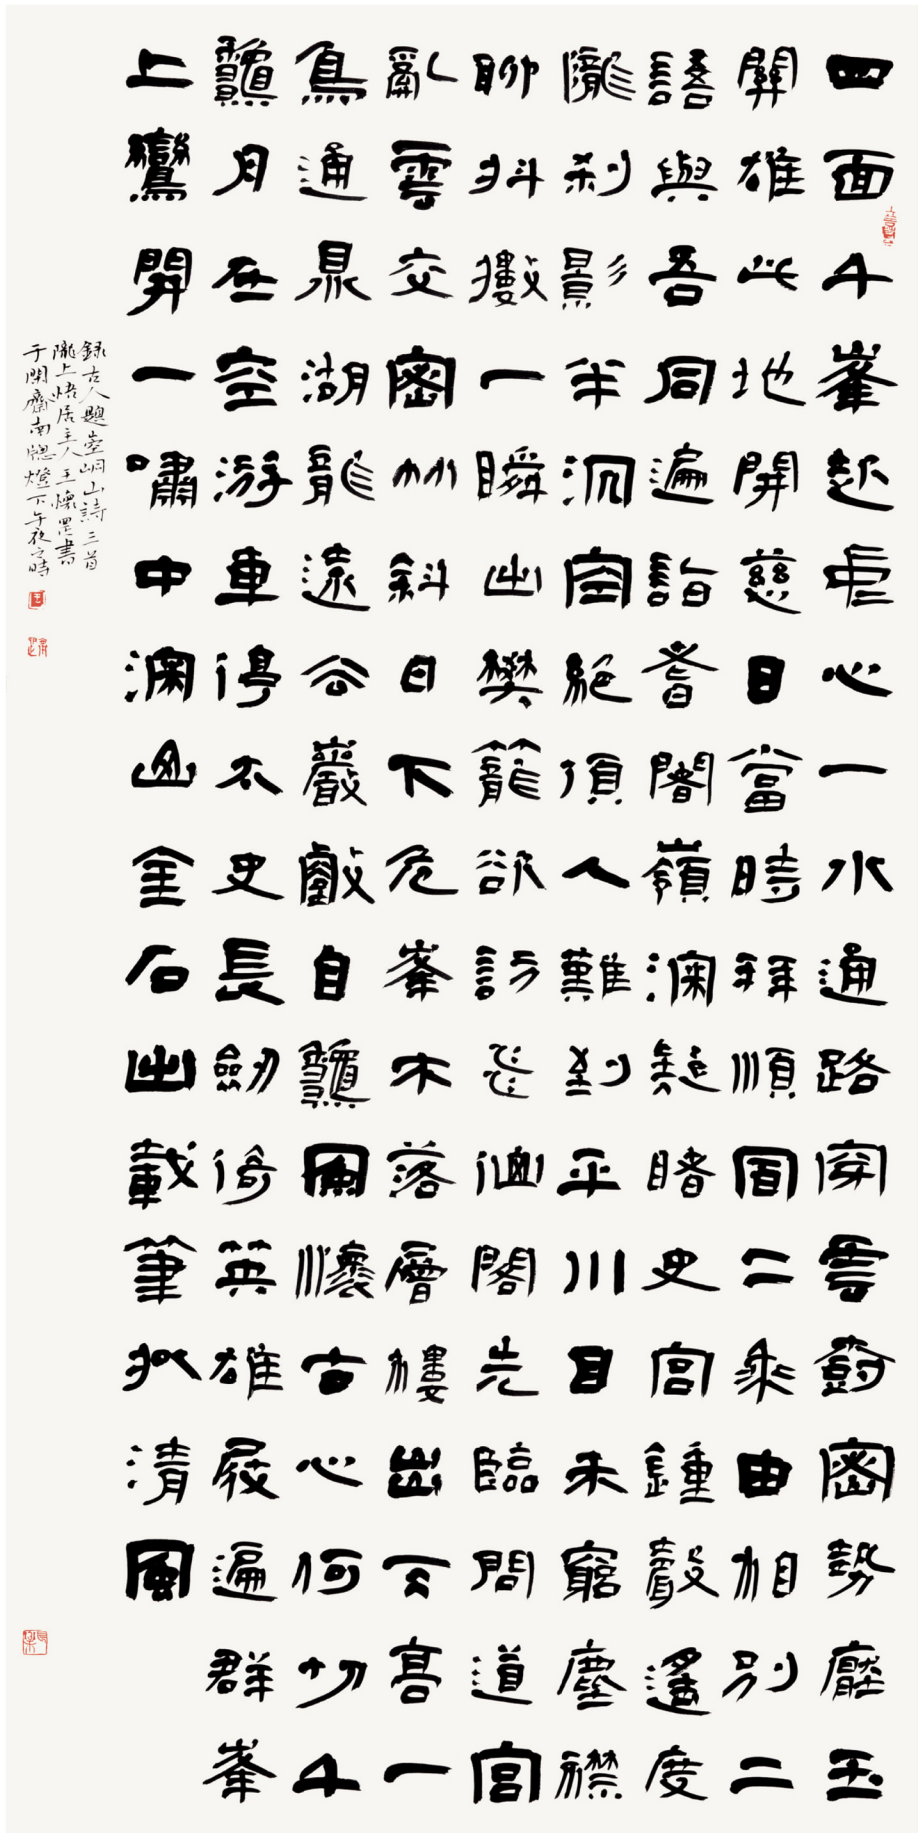 四面千峯起虛心一水通路穿雲蔚密勢壓玉
關雄此地開慈目當時拜順圓二乘由相別二
語與吾同遍詣耆闍嶺淵疑睹史宮鐘聲遙度
隴剎影半沉空絕頂人難到平川目未窮塵襟
聊抖擻一瞬出樊籠欲訪飛仙閣先臨問道宮
亂雲交密竹斜日下危峯木落層樓出天高一
鳥通鼎湖龍遠公巖戲自龝風懷古心何切千
龝月在空游車得太史長劍倚英雄屐遍群峯
上鸞開一嘯中淵幽金石出載筆狀清風
錄古人題崆峒山詩三首
隴上悟居主人王懷罡書
于開齋南窗燈下午夜之時